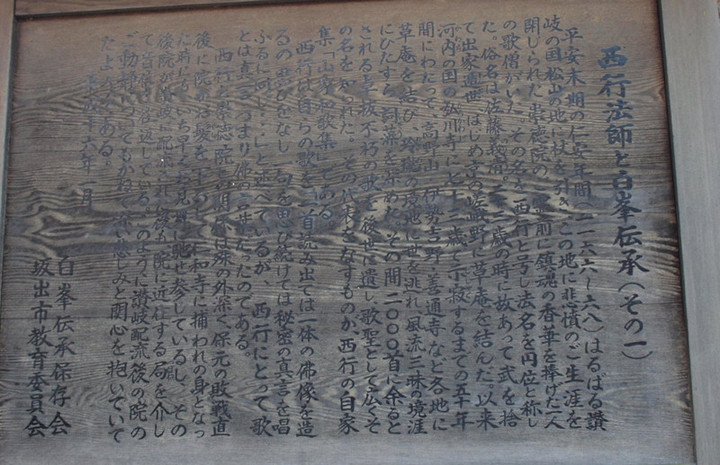 西行法師と白峯伝承(その一)
平安末期の仁安年間(一一六六～六八)はるばる讃
岐の国松山の地に杖を引き、この地に悲憤のご生涯を
閉じられた崇徳院の霊前に鎮魂の香華を捧げた一人
の歌僧がいた。その名を西行と号し法名を円位と称し
た。俗名は佐藤義清、二三歳の時に故あって武を捨
て出家遁世、はじめ京の嵯峨野に草庵を結んだ。以来
河内の国の弘川寺に七十三歳で示寂するまでの五十年
間にわたって、高野山、伊勢吉野、善通寺など各地に
草庵を結び、玲瓏の境地に世を逃れ、風流三昧の境涯
にひたすら詞藻を求めた。その間二〇〇〇首に余ると
される
の歌を後世に遺し、歌聖として広くそ
の名を知られた。その代表をなすものが、西行の自家
集「山家和歌集」である。
西行は自らの歌を「一首読み出ては一体の佛像を造
るの思ひをなし、一句を思ひ続けては秘密の真言を唱
ふるに同じ…」と述べているが、西行にとって歌
とは真言つまり佛の言葉だったのである。
西行と崇徳院との
は殊の外深く、保元の敗戦直
後に院がお髪を
仁和寺に捕われの身となっ
た時にも、いち早く
馳せ参じているし、その
後院が讃岐に配流されて
も院に近侍する局を介し
て
返している。このように讃岐配流後の院の
ご動静については
悲しみと関心を抱いていて
た
である。
六年
月
白峯伝承保存会
坂出市教育委員会